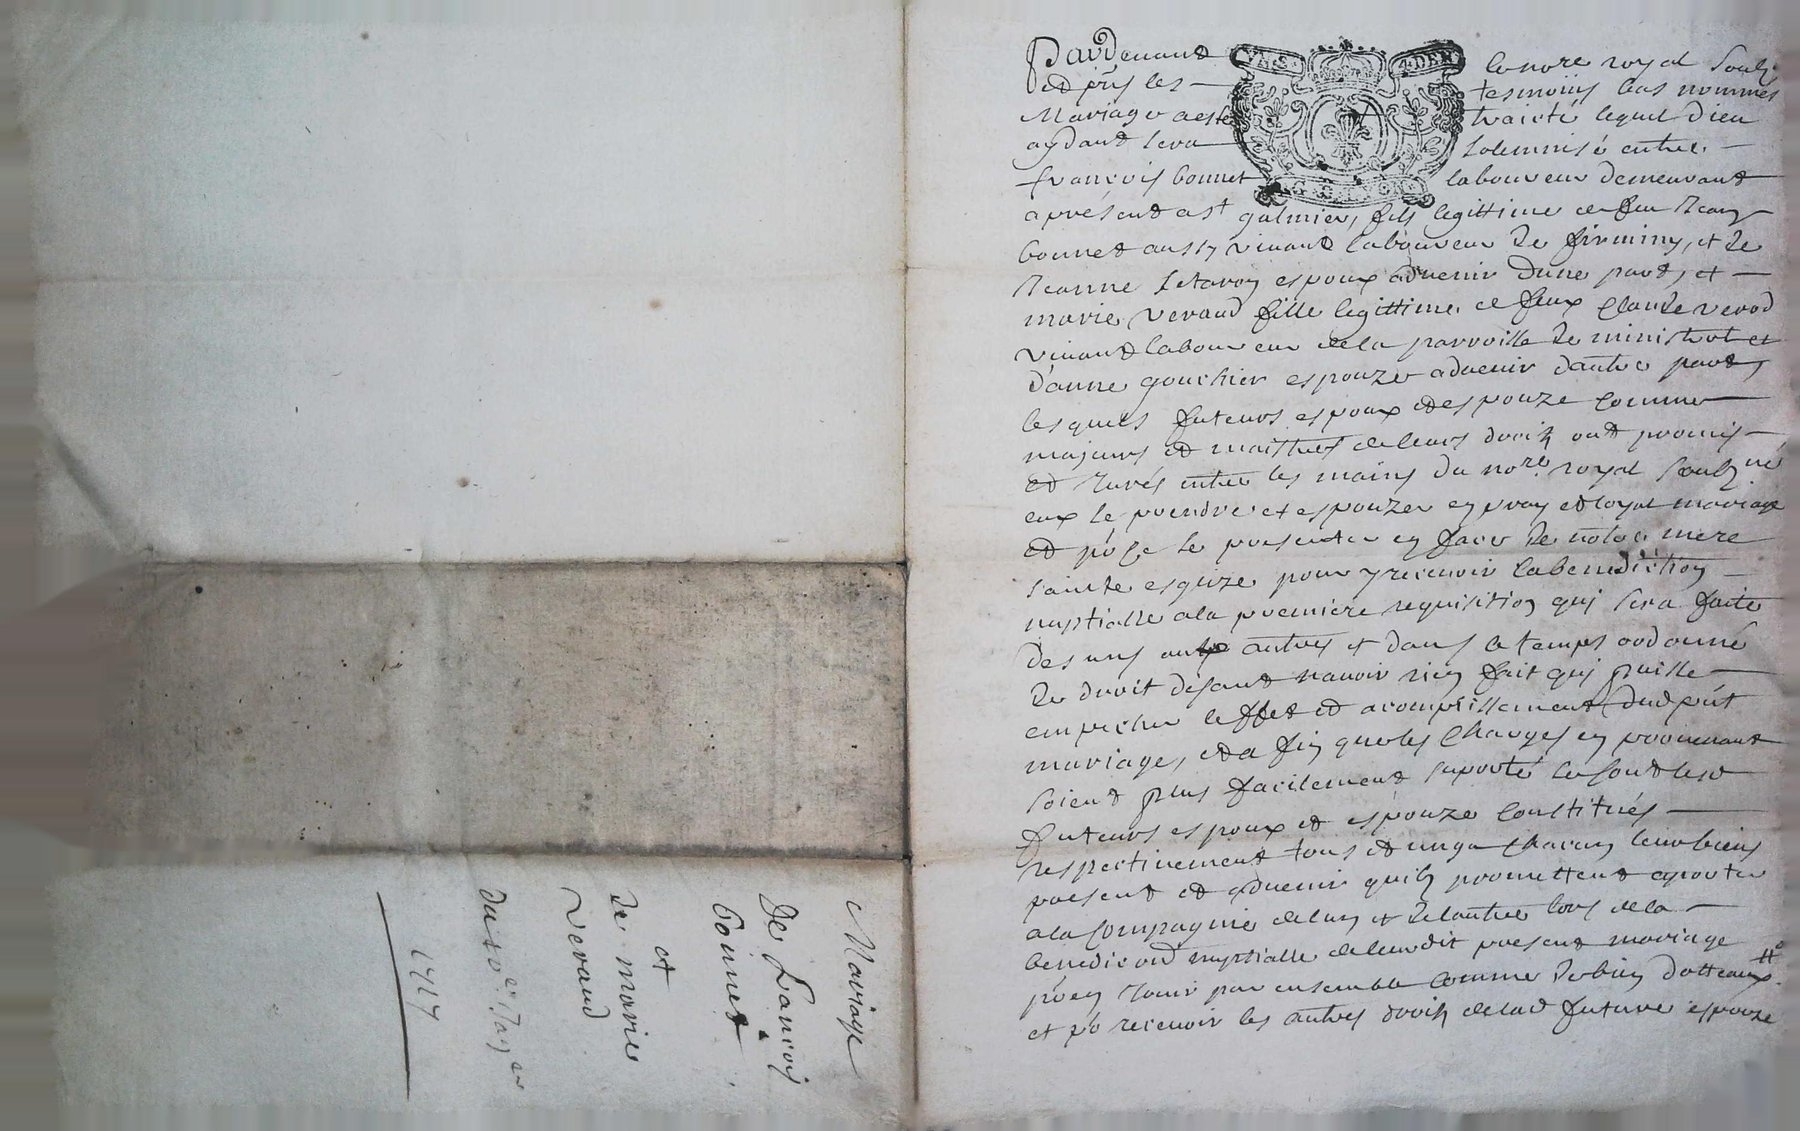 Pardevant le no.re royal soubz.
et pñs les tesmoins bas nommés
Mariage a esté traicté lequel Dieu
aydant sera solemnisé entre
françois bonnet laboureur demeurant
apresent a s.t galmier, fils legittime de feu Jean
bonnet aussy vivant laboureur de firminy, et de
Jeanne espoux advenir dune part, et
marie veraud fille legittime de feux Claude verod
vivant laboureur de la parroisse de ministrol et
d'anne gouthier espouze advenir dautre part,
lesquels futeurs espoux et espouze comme
majeurs et maistres de leurs droits ont promis
et jurés entre les mains du no.re royal soubz.né
eux se prendre et espouzer en vray et loyal mariage
et po ce se presenter en face de notre mere
sainte esglize pour y recevoir la benediction
nuptialle a la premiere requisition qui sera faite
des uns aux autres et dans le temps ordonné
de droit disant navoir rien fait qui puisse
empecher leffet et acomplissement dud pñt
mariage, et a fin que les Charges en provenant
soient plus facilement suporté se sont lesd
futeurs espoux et espouze constitués
respectivement tous et ungs chacun leur biens
present et advenir quilz promettent aporter
a la Compagnie de lun et de lautre lors de la
benediction nuptialle de leurdit present mariage
po en Jouir par ensemble comme de bien dotteaux #
et po recevoir les autres droits de lad future espouze
Mariage
De françois
Bonnet
et
de marie
veraud
Du 10e. Janer
1717